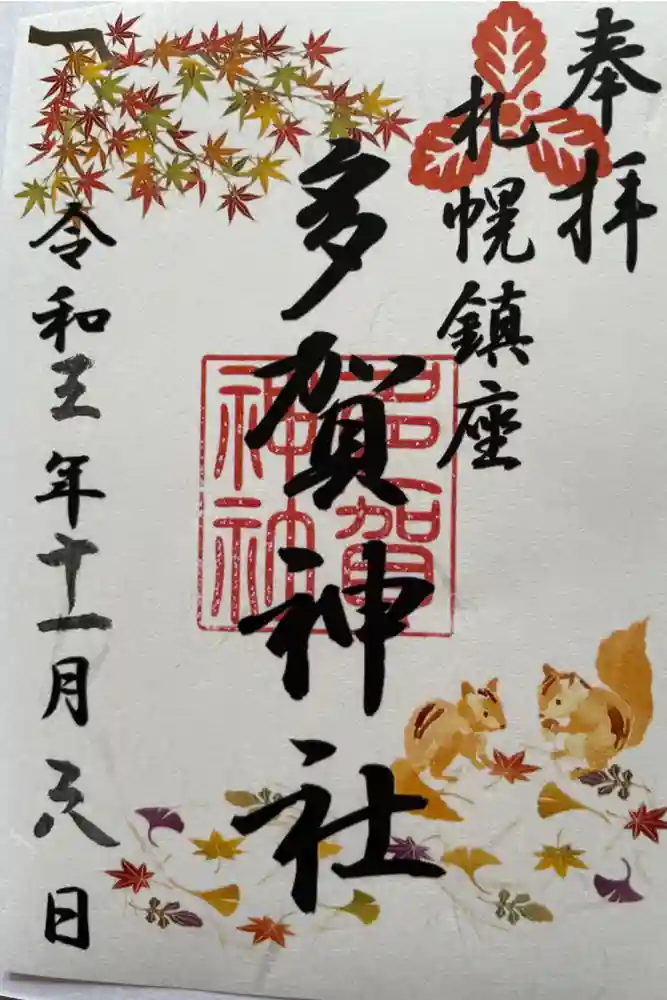 奉拝
札幌鎮座
多賀神社
多賀
神
令和五年十一月 日